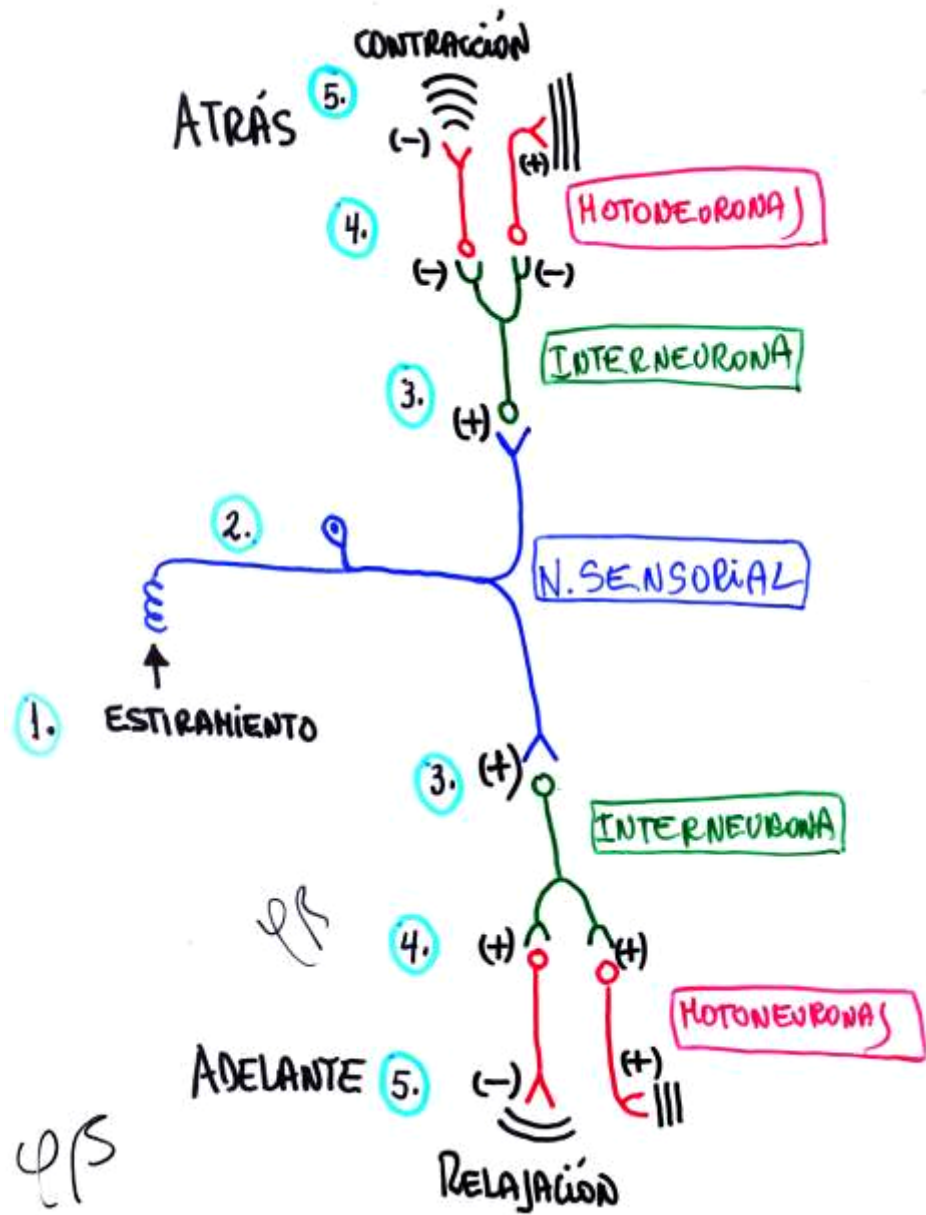 CONTRACCIÓN
5.
ATRÁS
(-)
(+)
MOTONEURONAS
4.
(-)
(-)
INTERNEURONA
3.
(+)
2.
N. SENSORIAL
1.
ESTIRAMIENTO
3.
(+)
INTERNEURONA
4.
(+)
(+)
MOTONEURONAS
ADELANTE
5.
(-)
(+)
RELAJACIÓN